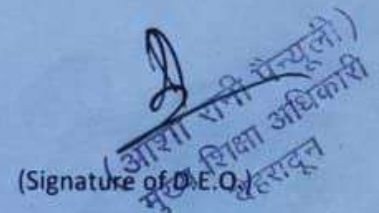 (आशा रानी पैन्यूली)
मुख्य शिक्षा अधिकारी
देहरादून
(Signature of D.E.O.)